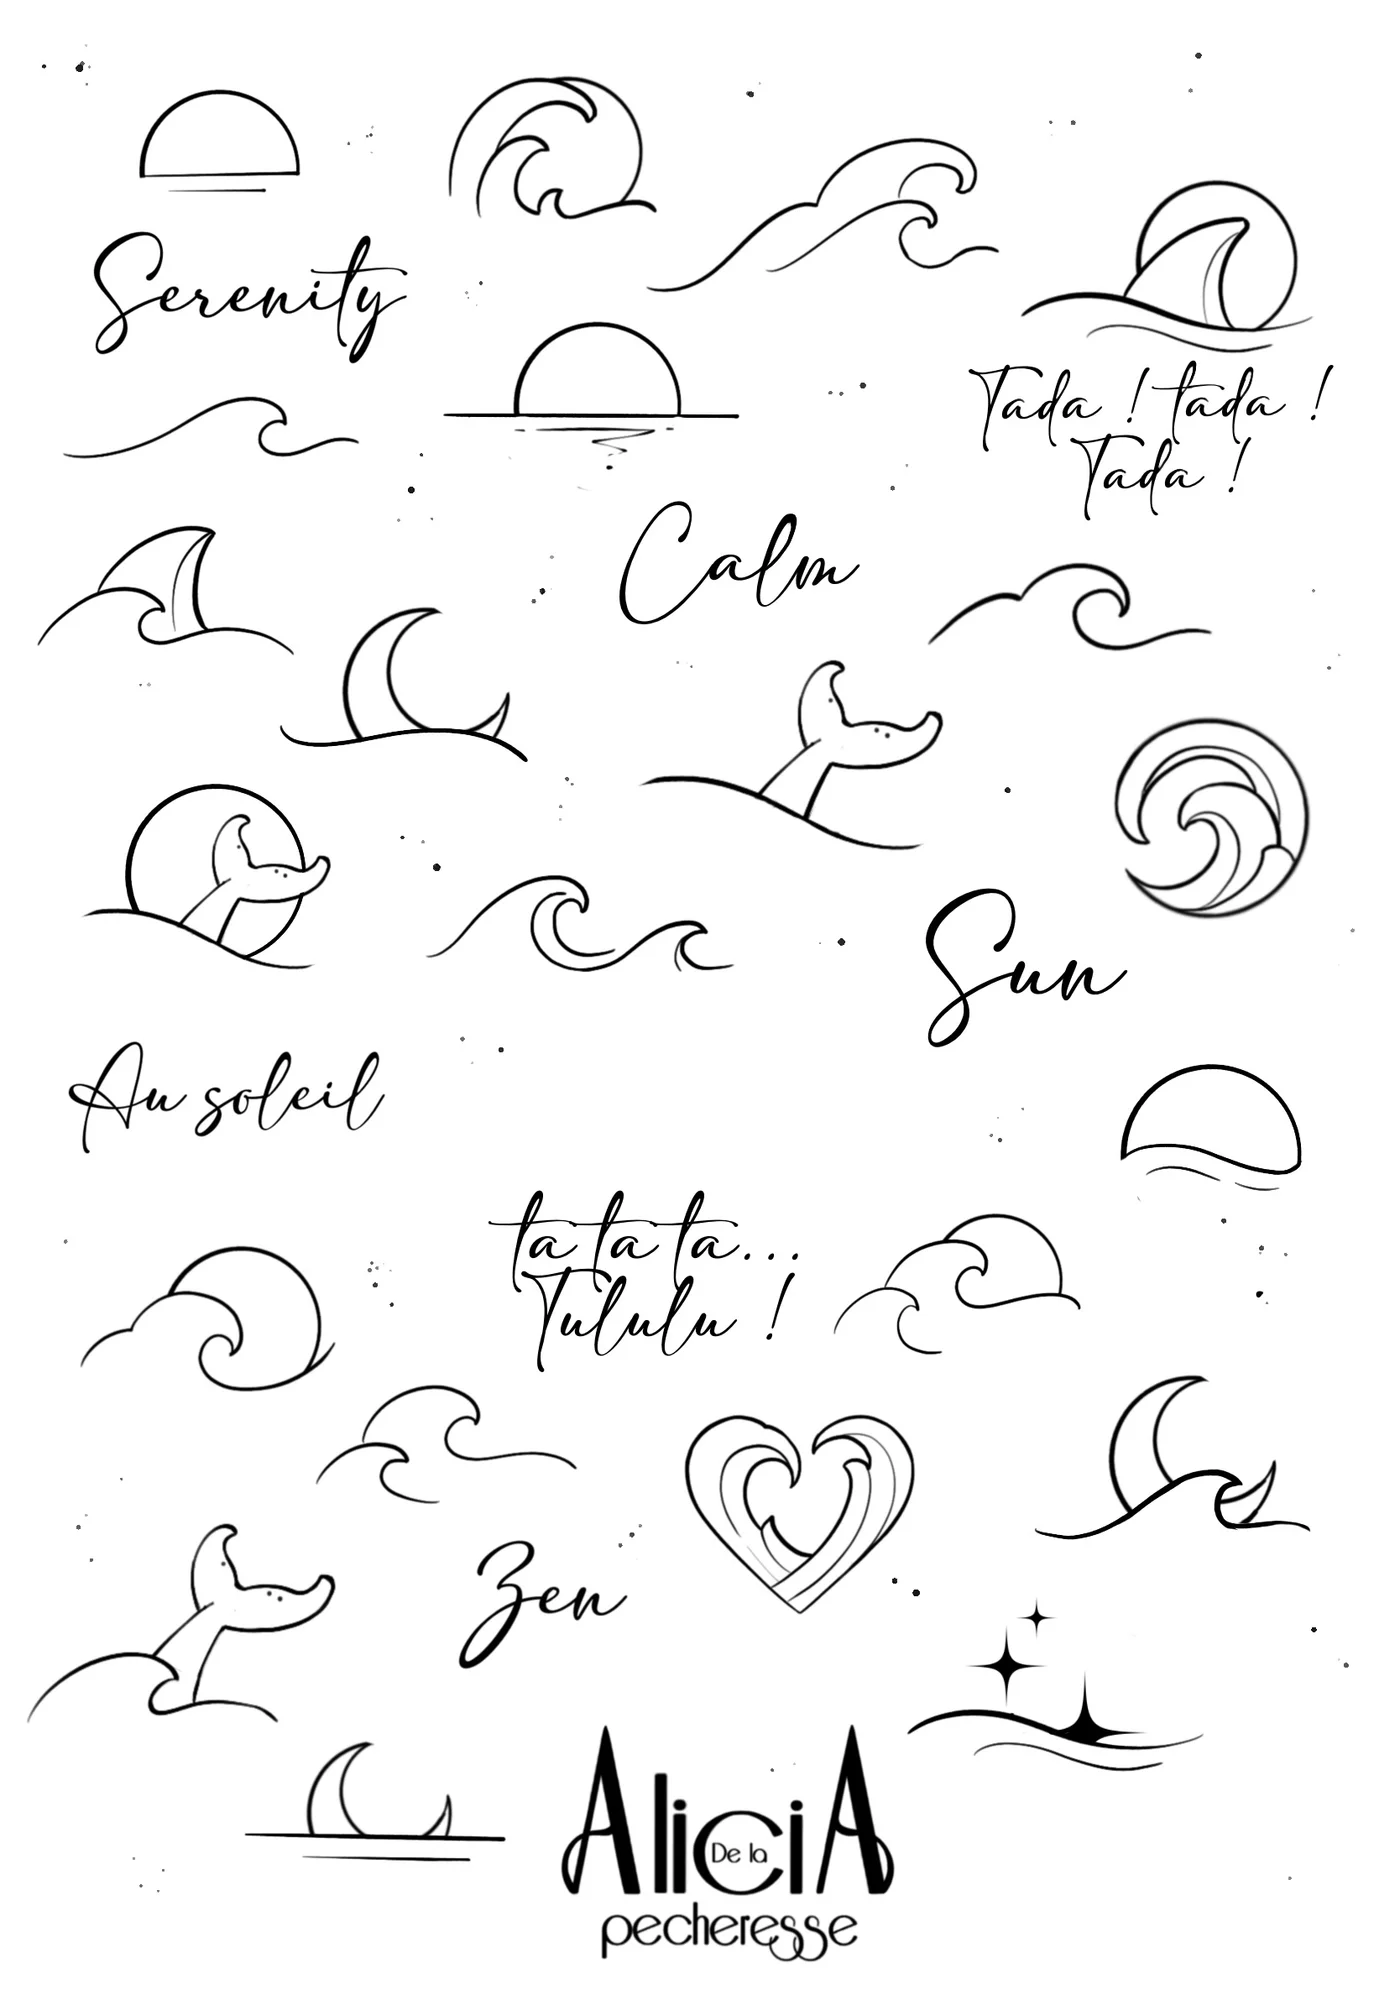 Serenity
Tada ! tada !
Tada !
Calm
Sun
Au soleil
ta ta ta...
Tululu !
Zen
AliciA
De la
pecheresse